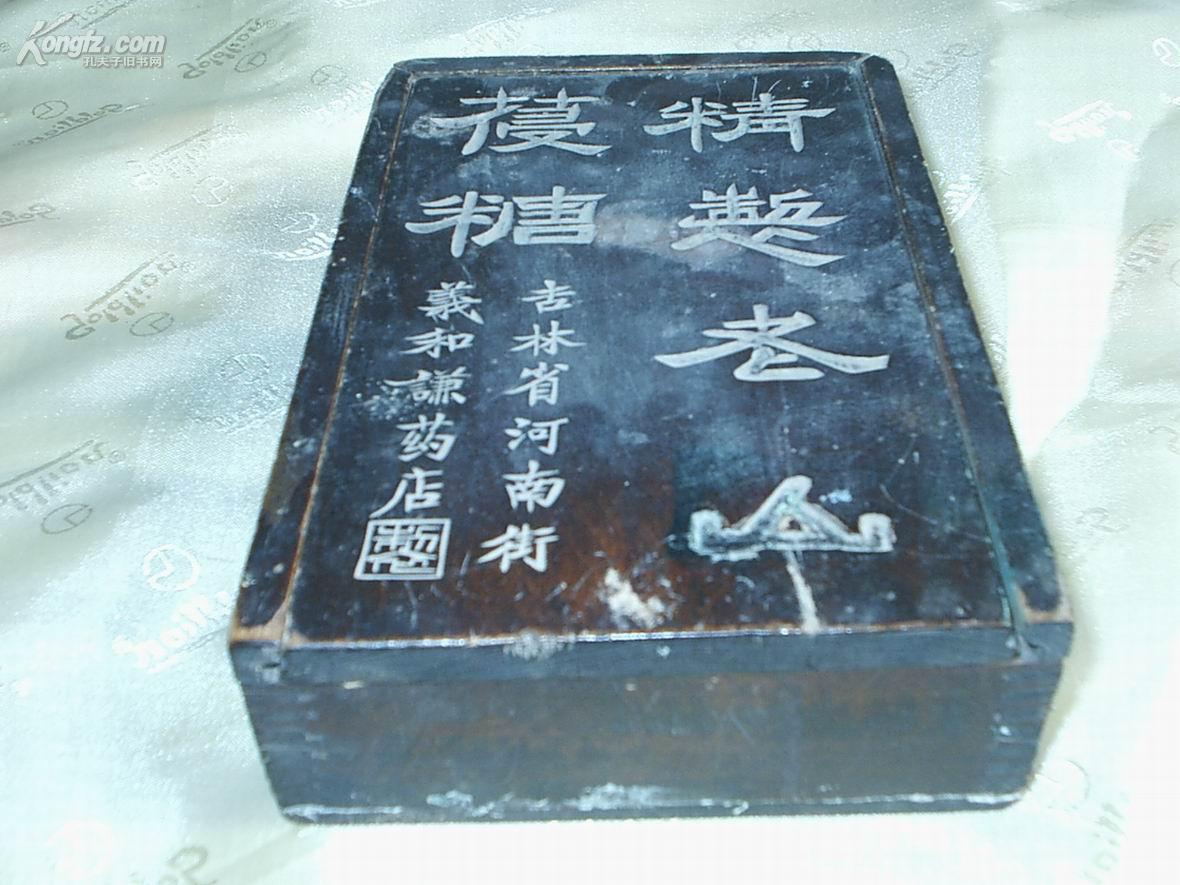 Kongfz.com
孔夫子旧书网
精製老山
葠糖
吉林省河南街
義和謙药店
製